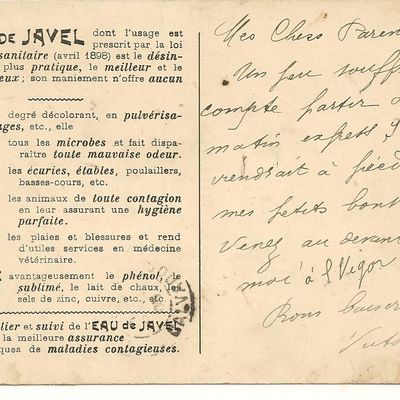 de JAVEL dont l'usage est
prescrit par la loi
sanitaire (avril 1898) est le désin-
plus pratique, le meilleur et le
eux ; son maniement n'offre aucun
degré décolorant, en pulvérisa-
ages, etc., elle
tous les microbes et fait dispa-
raître toute mauvaise odeur.
les écuries, étables, poulaillers,
basses-cours, etc.
les animaux de toute contagion
en leur assurant une hygiène
parfaite.
les plaies et blessures et rend
d'utiles services en médecine
vétérinaire.
avantageusement le phénol, le
sublimé, le lait de chaux, les
sels de zinc, cuivre, etc.
lier et suivi de l'EAU de JAVEL
la meilleure assurance
ques de maladies contagieuses.
Mes Chers Paren
Un peu souff
compte partir
matin express
viendrait à
mes petits
Venez au devant
moi à St Vigor
Bons baisers